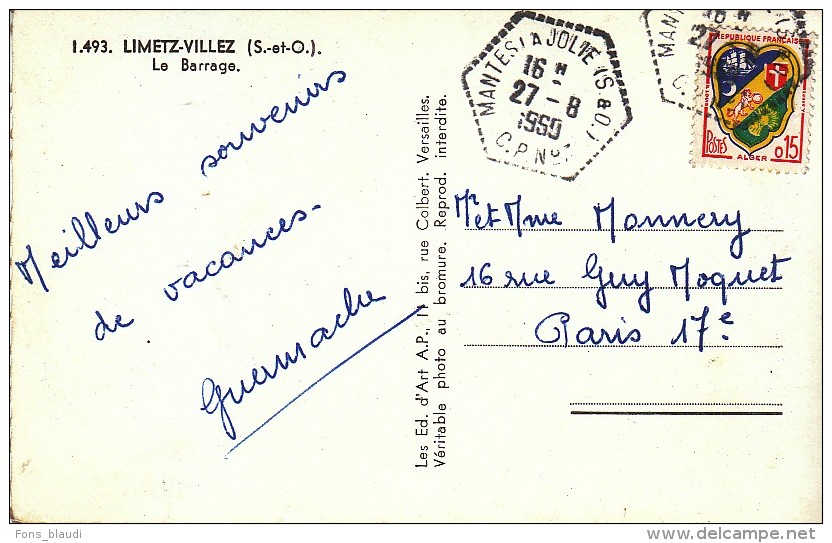 1.493. LIMETZ-VILLEZ (S.-et-O.).
Le Barrage.
Meilleurs souvenirs
de vacances.
Guermache
Les Ed. d'Art A.P., 11 bis, rue Colbert. Versailles.
Véritable photo au bromure. Reprod. interdite.
MANTES LA JOLIE (S & O.)
16 H
27 - 8
1960
C.P. N°1
REPUBLIQUE FRANCAISE
POSTES
0,15
ALGER
Mr et Mme Monnery
16 rue Guy Moquet
Paris 17e.
Fons_blaudi
delcampe.net